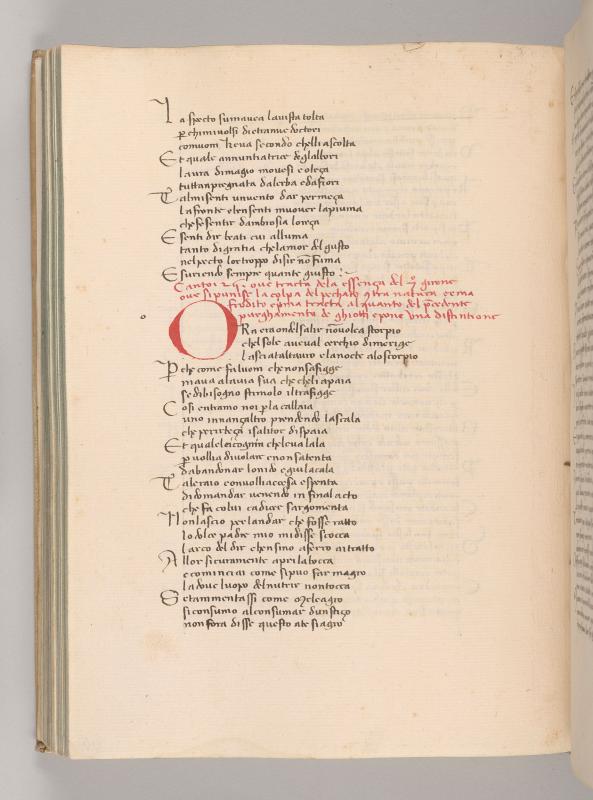 La specto sumauea lauista tolta
p̲ chiminolsi dietranue doctori
comuom keua secondo chelli ascolta
Et quale annuntiatrice deglalbori
laura dimagio mouesi e oleça
tuttanpregnata dalerba edafiori
Tal misenti unuento dar permeça
lafronte ebensenti muouer lapiuma
chefesentir dambrosia loreça
E senti dir beati cui alluma
tanto digratia chelamor del gusto
nelpecto lortroppo disir nō fuma
Esuriendo sempre quante giusto
Canto oue tracta dela essença del girone
oue sipunisce la colpa del pechato natura et ma
fradito epma tracta alquanto del p̄cedente
purghamento de ghiotti epone una distintione
ORa era ondelsalir nōuolea storpio
chel sole aueual cerchio dimerige
lasciataltauro elanocte aloscorpio
Pche come faluom chenonsafigge
maua alauia sua che cheli apaia
sedibisogno stimolo iltrafigge
Cosi entramo noi p̲la callaia
uno innançaltro prendendo lascala
che perirteçça isalitor dispaia
Et qualelcicognin cheleualala
p̲ uollia diuolare enonsatenta
dabandonar lonido egiulacala
Tal eraio conuolliaccesa espenta
didomandar uenendo in finalacto
che fa colui cadicer sargomenta
Non lascio per landar che fosse ratto
lo dolce padre mio midisse scocca
larco del dir chensino aferro aitratto
Allor sicuramente apri labocca
e cominciai come sipuo far magro
la doue luopo delnutrir nontocca
Setammentassi come Meleagro
siconsumo alconsumar dunstiço
non fora disse questo ate siagro